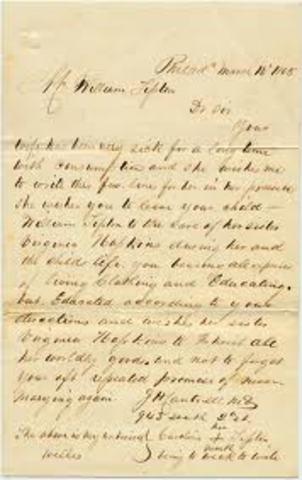 Philad^a March 18" 1865
Mr William Tipton
Dr Sir
Your
wife has been very sick for a long time
with consumption and she wishes me
to write this few lines for her in her presence
she wishes you to leave your child —
William Tipton to the care of her sister
Eugenia Hopkins during her and
the childs life, you bearing all expense
of living Clothing and Educating.
but Educated according to your
directions and wishes her sister
Eugenia Hopkins to Inherit all
her worldly goods and not to forget
your oft repeated promises of never
marrying again.
J H M.D
943 south 2^d St
The above is my Caroline her + Tipton
wishes mark
being to weak to write